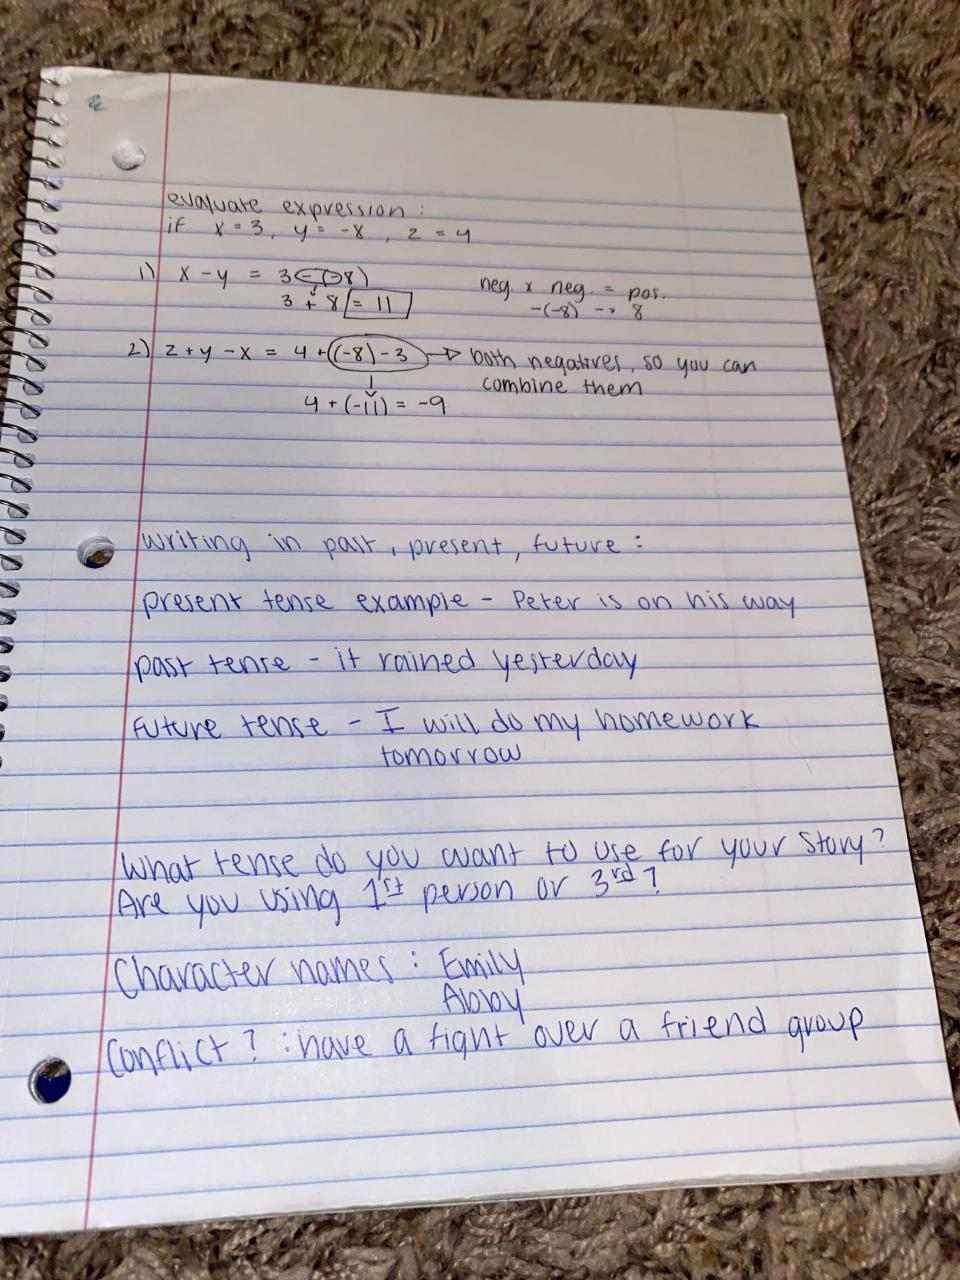 evaluate expression:
if x = 3, y = -8, z = 4
1) x - y = 3 - (-8)
3 + 8 = 11
neg. x neg. = pos.
-(-8) -> 8
2) z + y - x = 4 + (-8) - 3 -> both negatives, so you can
combine them
4 + (-11) = -9
writing in past, present, future:
present tense example - Peter is on his way
past tense - it rained yesterday
future tense - I will do my homework
tomorrow
What tense do you want to use for your story?
Are you using 1st person or 3rd?
Character names: Emily
Abby
Conflict? : have a fight over a friend group